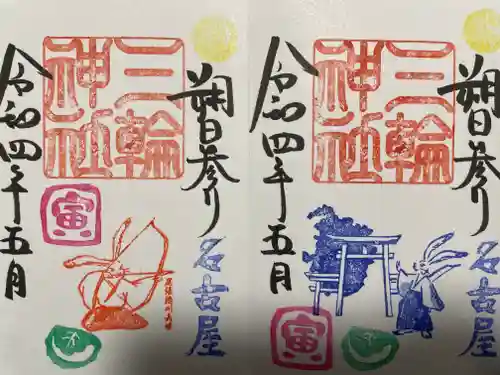 朔日参り
名古屋
三輪
神社
令和四年五月
寅
朔日参り
名古屋
三輪
神社
令和四年五月
寅